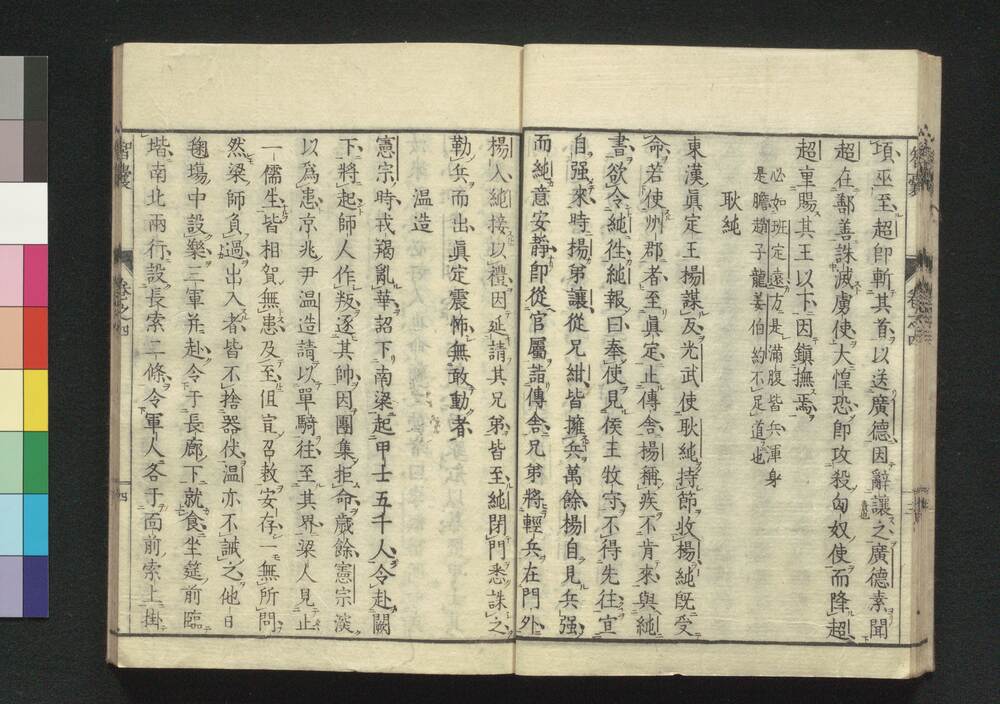 項巫至超即斬其首以送廣德因辭讓之廣德素聞
超在鄯善誅滅虜使大惶恐即攻殺匈奴使而降超
超重賜其王以下因鎮撫焉
必如班定遠方是滿腹皆兵渾身
是膽趙子龍姜伯約不足道也
耿純
東漢眞定王揚謀反光武使耿純持節收揚純旣受
命若使州郡者至眞定止傳舍揚稱疾不肯來與純
書欲令純徃純報曰奉使見侯王牧守不得先往宜
自强來時揚弟讓從兄紺皆擁兵萬餘揚自見兵强
而純意安靜即從官屬詣傳舍兄弟將輕兵在門外
楊入純接以禮因延請其兄弟皆至純閉門悉誅之
勒兵而出眞定震怖無敢動者
温造
憲宗時戎羯亂華詔下南梁起甲士五千人令赴闕
下將起師人作叛逐其帥因團集拒命歲餘憲宗深
以爲患京兆尹温造請以單騎往至其界梁人見止
一儒生皆相賀無患及至但宣召敕安存一無所問
然梁師負過出入者皆不捨器仗温亦不誡之他日
毬塲中設樂三軍并赴令于長廊下就食坐筵前臨
堦南北兩行設長索二條令軍人各于面前索上掛
智囊
卷之四
四